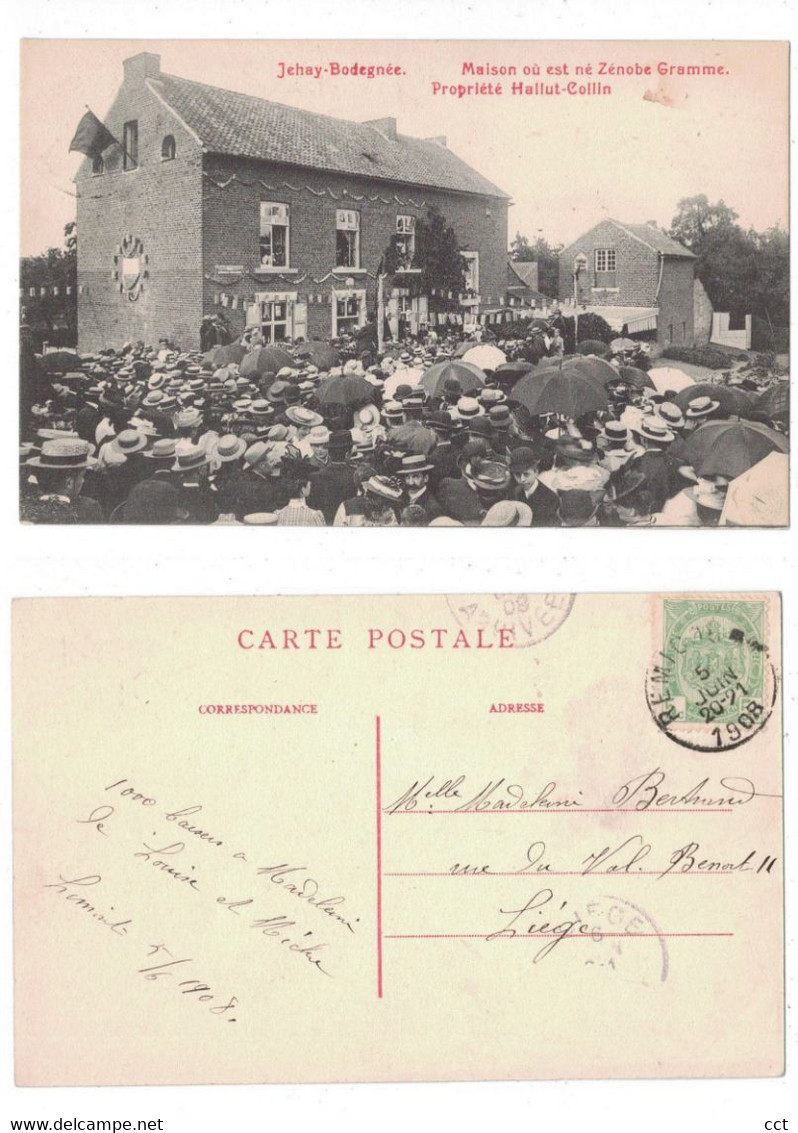 Jehay-Bodegnée. Maison où est né Zénobe Gramme.
Propriété Hallut-Collin
CARTE POSTALE
ARRIVÉE
08
POSTES
REMIC
5
JUIN
20-21
1908
CORRESPONDANCE
ADRESSE
1000 baisers a Madeleine
de Louise et
5/6 1908.
Melle Madeleine Bertrand
rue du Val. Benoit 11
Liége
LIEGE
6
delcampe.net
cct